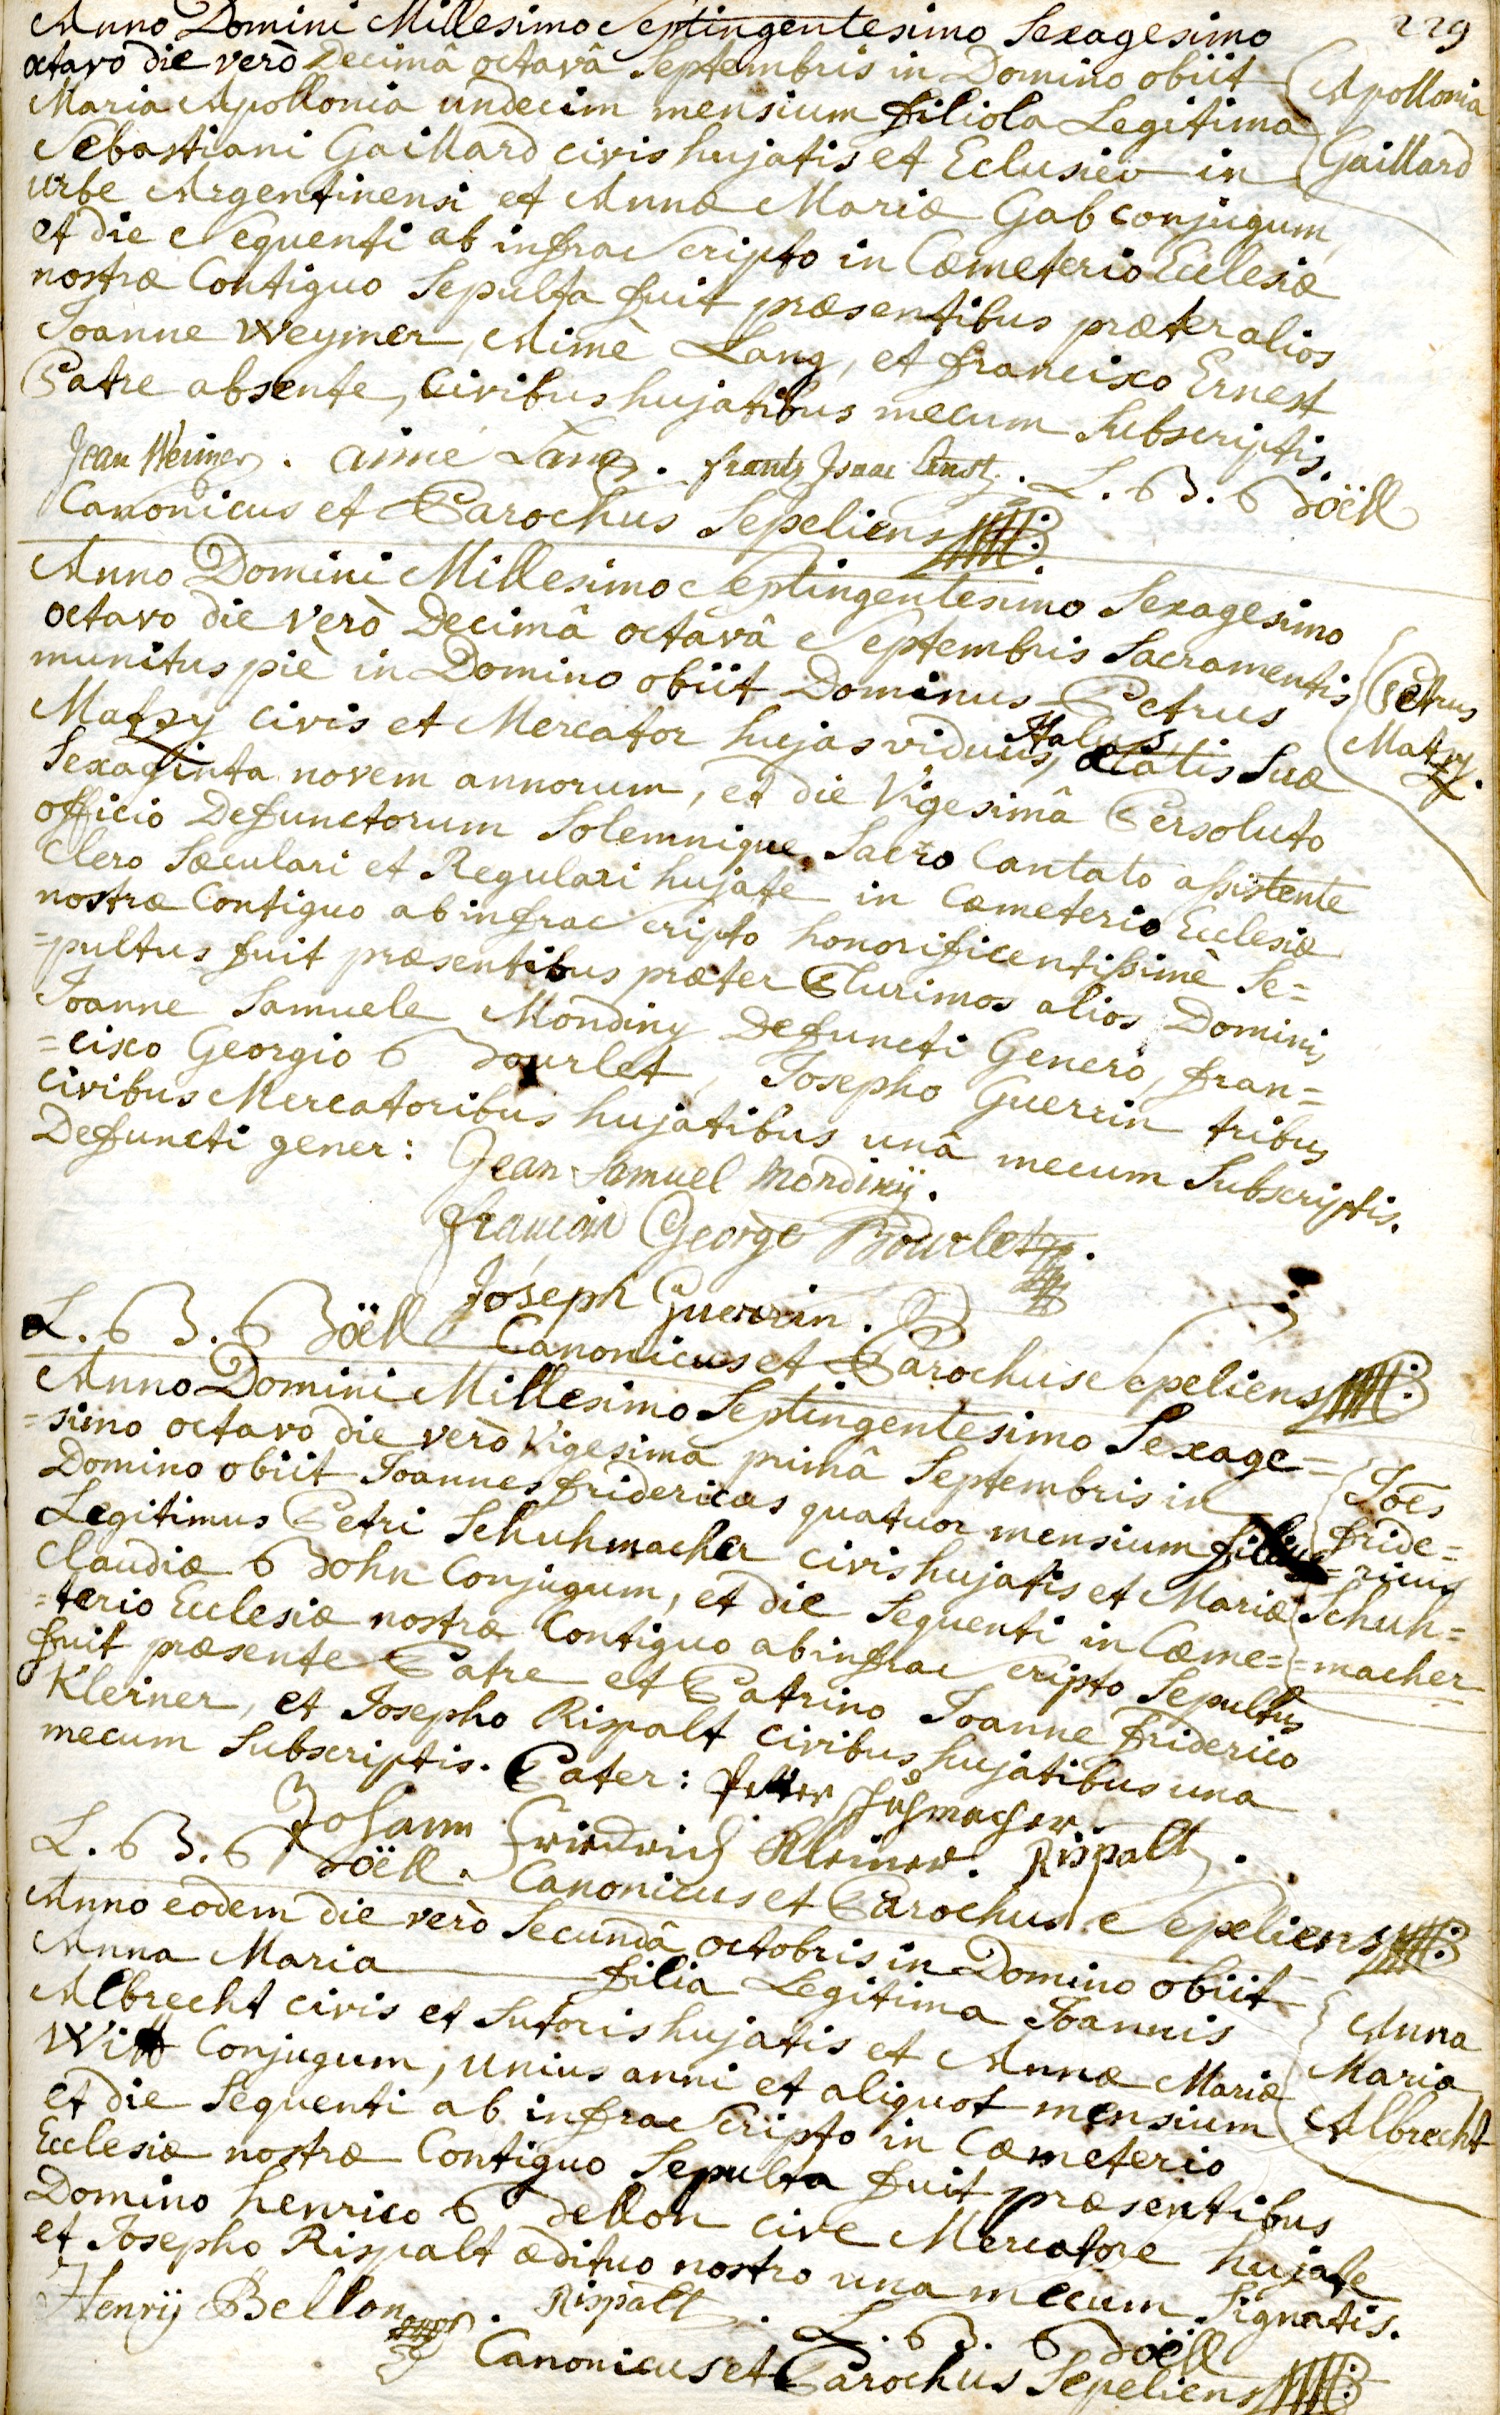 229
Anno Domini Millesimo Septingentesimo Sexagesimo
octavo die verò Decimâ octavâ Septembris in Domino obiit
Maria Apollonia undecim mensium filiola Legitima
Sebastiani Gaillard civis hujatis et Eclusiev in
urbe Argentinensi et Annæ Mariæ Gab conjugum,
et die Sequenti ab infrascripto in Cœmeterio Ecclesiæ
nostræ Contiguo Sepulta fuit præsentibus præter alios
Joanne Weymer, Aimè Lang, et francisco Ernest
Patre absente, Civibus hujatibus mecum Subscriptis.
Apollonia
Gaillard
Jean Weimer. aimé Lang. frantz Isaac Ernst. L. B. Boëll
Canonicus et Parochus Sepeliens
Anno Domini Millesimo Septingentesimo Sexagesimo
octavo die verò Decimâ octavâ Septembris Sacramentis
munitus piè in Domino obiit Dominus Petrus
Matzy civis et Mercator hujas viduus, Italus ætatis Suæ
Sexaginta novem annorum, et die Vigesimâ Persoluto
officio Defunctorum Solemnique Sacro Cantato assistente
Clero Sæculari et Regulari hujate in Cœmeterio Ecclesiæ
nostræ Contiguo ab infrascripto honorificentissimè Se=
=pultus fuit præsentibus præter Plurimos alios Dominis
Joanne Samuele Mondiny Defuncti Genero, fran=
=cisco Georgio Bourlet, Josepho Guerrin tribus
Civibus Mercatoribus hujatibus unâ mecum Subscriptis.
Petrus
Matzy.
Defuncti gener: Jean Samuel Mondinÿ.
francoi George Bourlet.
Joseph Guerrin.
L. B. Boëll Canonicus et Parochus Sepeliens
Anno Domini Millesimo Septingentesimo Sexage=
=simo octavo die verò Vigesimâ primâ Septembris in
Domino obiit Joannes fridericus quatuor mensium filius
Legitimus Petri Schuhmacher civis hujatis et Mariæ
Claudiæ Bohn Conjugum, et die Sequenti in Cœme=
=terio Ecclesiæ nostræ Contiguo ab infrascripto Sepultus
fuit præsente Patre et Patrino Joanne friderico
Kleiner, et Josepho Rispalt civibus hujatibus una
mecum Subscriptis. Pater: Petter Schuhmacher.
Joēs
fride=
=ricus
Schuh=
=macher
Johann Friedrich Kleiner. Rispalt.
L. B. Boëll. Canonicus et Parochus Sepeliens
Anno eodem die verò Secundâ octobris in Domino obiit
Anna Maria filia Legitima Joannis
Albrecht civis et Sutoris hujatis et Annæ Mariæ
Witt Conjugum, unius anni et aliquot mensium
et die Sequenti ab infrascripto in Cœmeterio
Ecclesiæ nostræ Contiguo Sepulta fuit præsentibus
Domino henrico Bellon cive Mercatore hujate
et Josepho Rispalt ædituo nostro una mecum Signatis.
Anna
Maria
Albrecht
Henrÿ Bellon. Rispalt. L. B. Boëll
Canonicus et Parochus Sepeliens